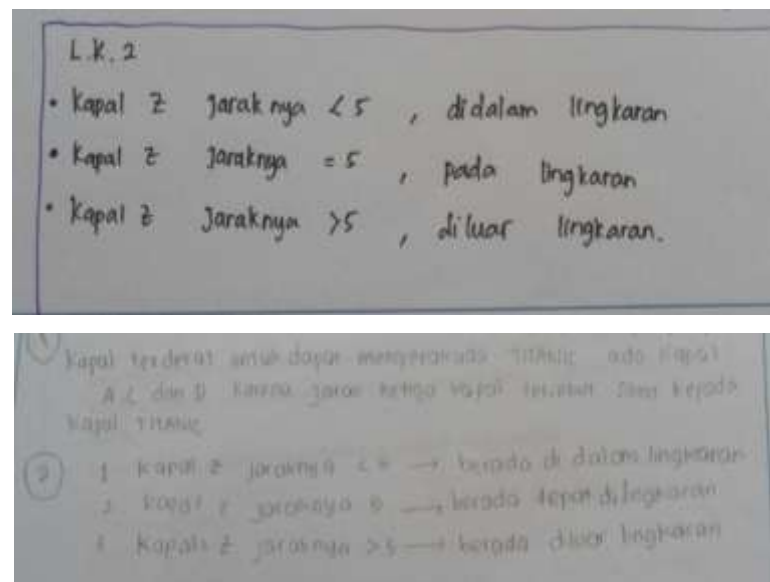 L.K. 2
• Kapal Z Jarak nya < 5 , didalam lingkaran
• Kapal Z Jaraknya = 5 , pada lingkaran
• Kapal Z Jaraknya >5 , diluar lingkaran.
Kapal terdekat untuk dapat TITANIC ada Kapal
A, C dan D Karena jarak ketiga kapal tersebut sama kepada
kapal TITANIC
2 1 Kapal Z jaraknya < → berada di dalam lingkaran
2 Kapal z jaraknya → berada tepat di lingkaran
3 Kapal z jaraknya >5 → berada diluar lingkaran